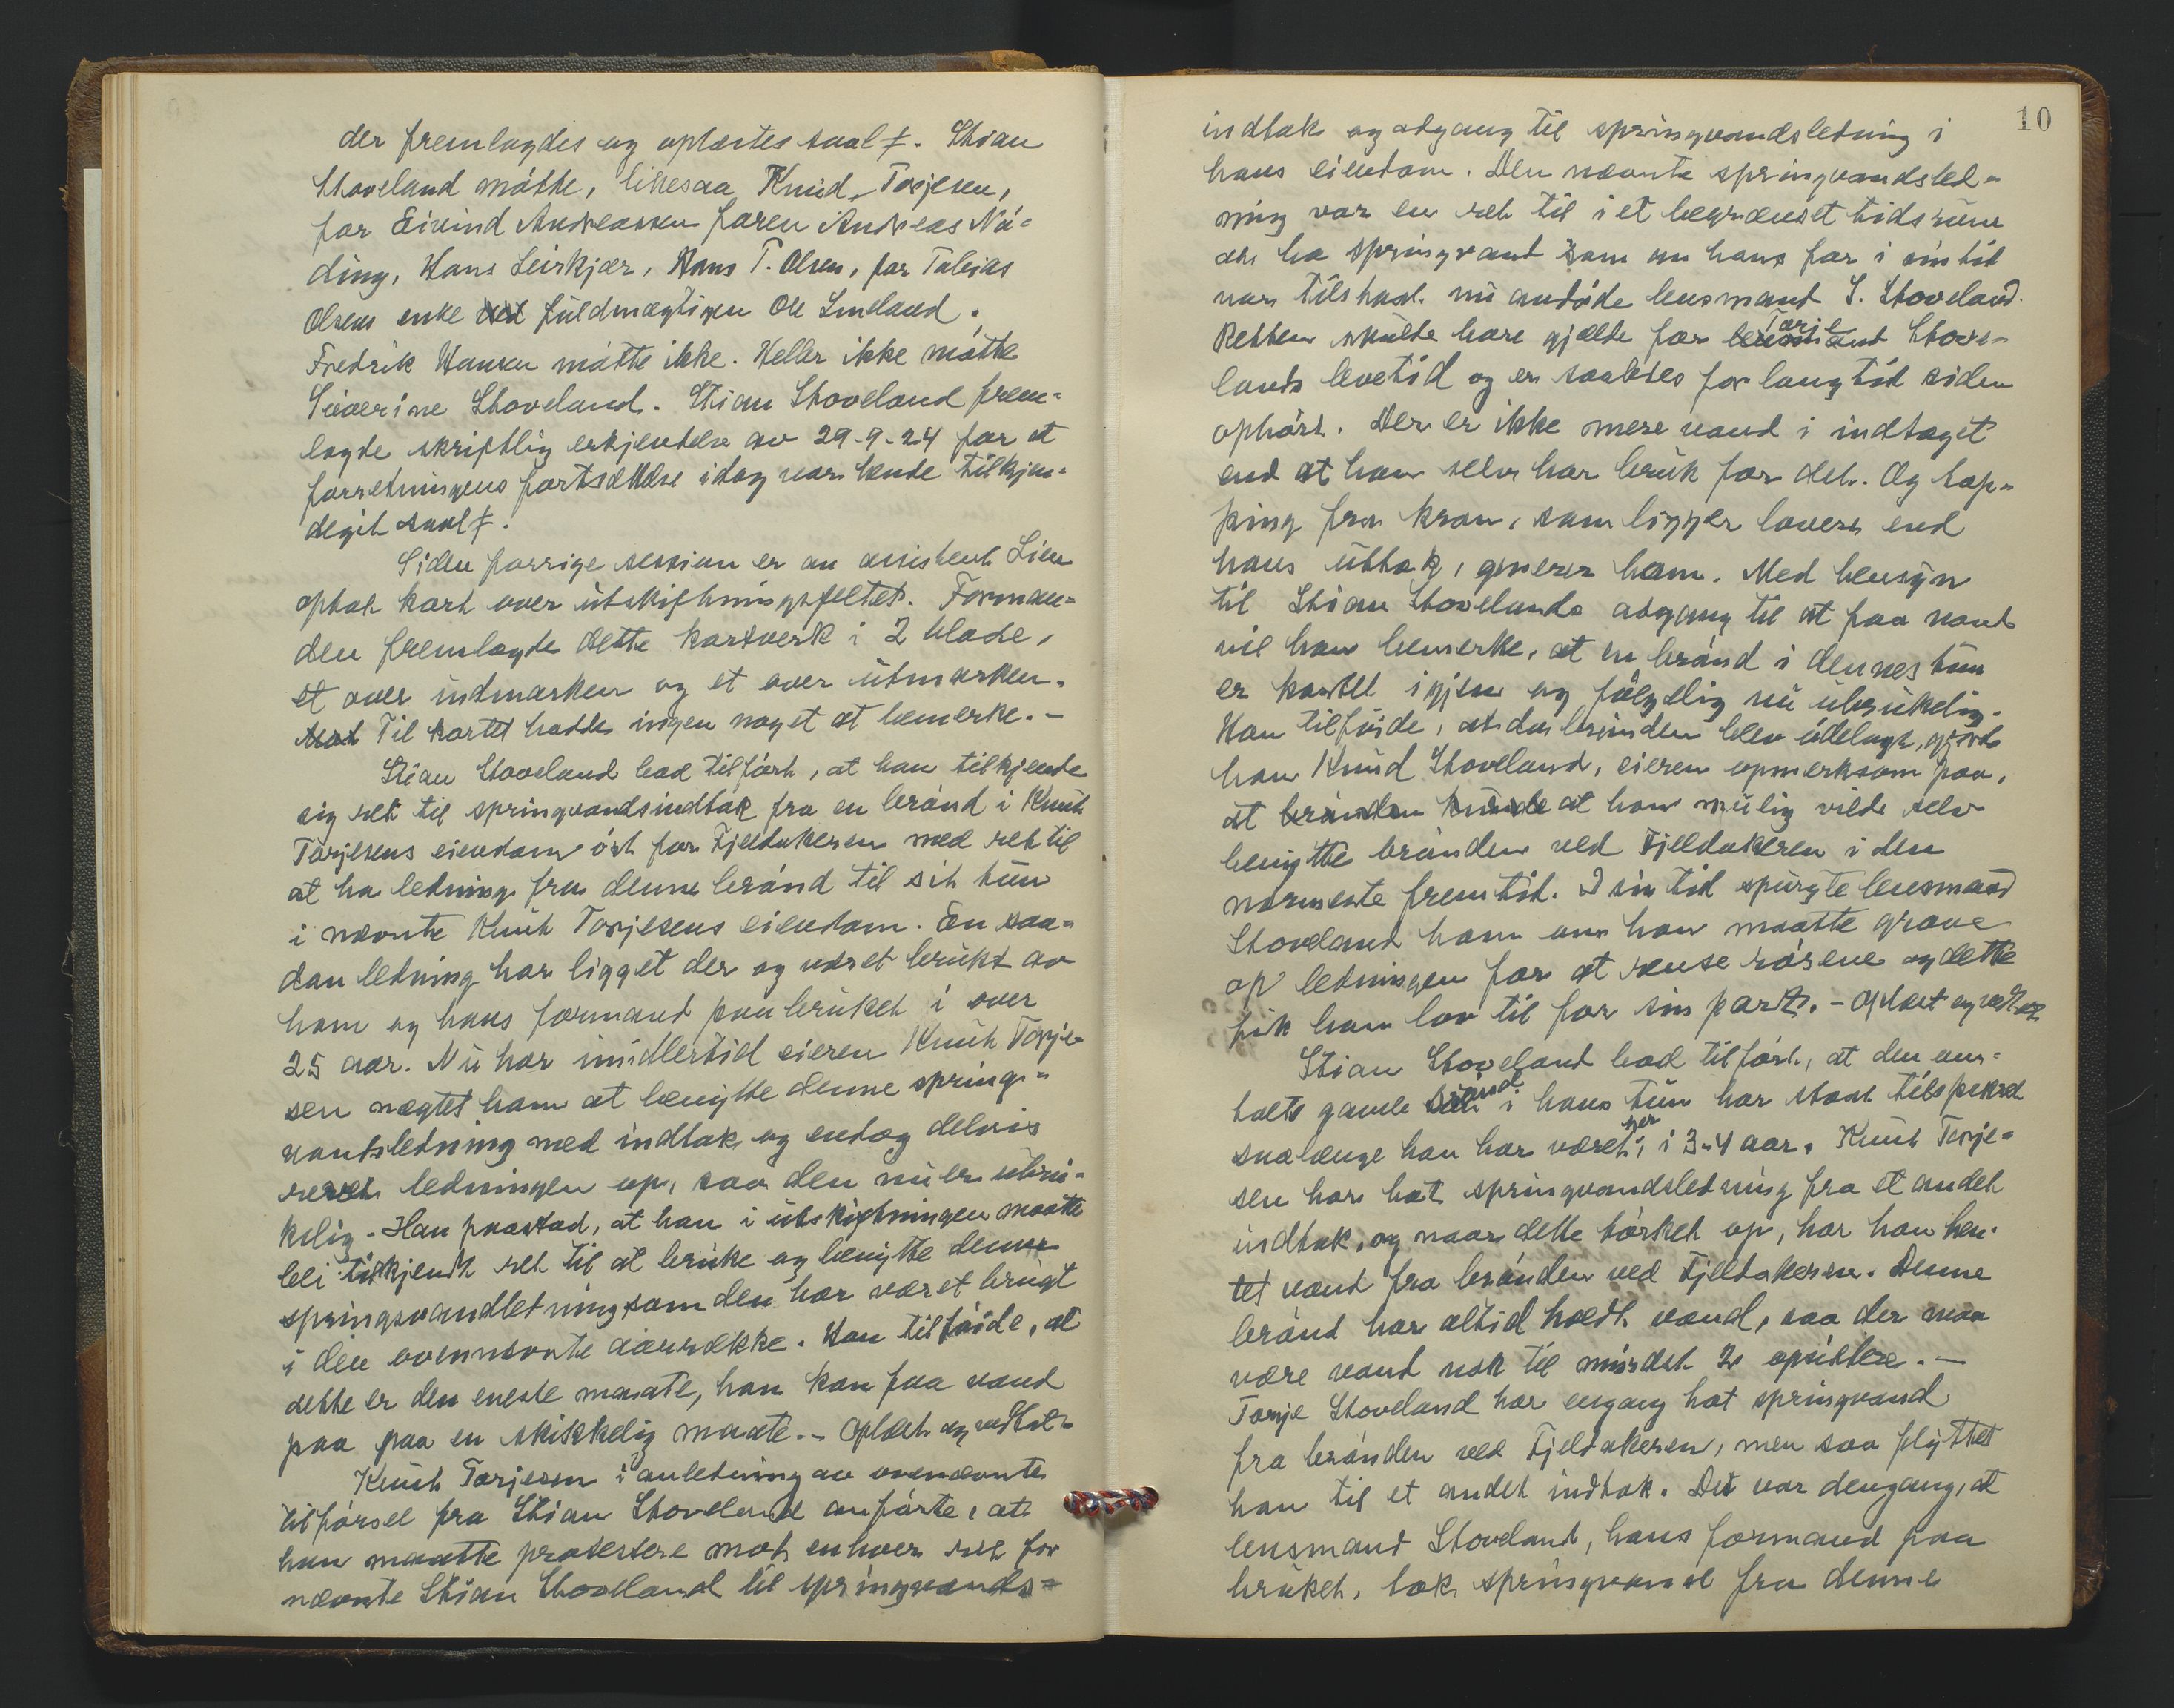 der fremlagdes og oplæstes saal‡. Stian
Stoveland møtte, likesaa Knud Torjesen,
for Eivind Andreassen faren Andreas Nö-
ding, Hans Leirkjær, Hans T. Olsen, for Tobias
Olsens enke ved fuldmægtigen Ole Smeland.
Fredrik Hansen møtte ikke. Heller ikke møtte
Severine Stoveland. Stian Stoveland frem-
lagde skriftlig erkjendelse av 29-9-24 for at
forretningens fortsættelse idag var hende tilkjen-
degit saal‡.
Siden forrige session er av assistent Lien
optat kart over utskiftningsfeltet. Forman-
den fremlagde dette kartverk i 2 blade,
et over indmarken og et over utmarken.
Til kartet hadde ingen noget at bemerke. –
Stian Stoveland bad tilført, at han tilkjende
sig ret til springvandsindtak fra en brønd i Knut
Torjesens eiendom øst for Fjeldakeren med ret til
at ha ledning fra denne brønd til sit tun
i nævnte Knut Torjesens eiendom. En saa-
dan ledning har ligget der og været brukt av
ham og hans formand paa bruket i over
25 aar. Nu har imidlertid eieren Knut Torje-
sen nægtet ham at benytte denne spring-
vandsledning med indtak og endog delvis
revet ledningen op, saa den nu er ubru-
kelig. Han paastod, at han i utskiftningen maatte
bli tilkjendt ret til at bruke og benytte denne
springvandledning som den har været brugt
i den ovennævnte aarrække. Han tilføide, at
dette er den eneste maate, han kan faa vand
paa paa en skikkelig maate. – Oplæst og vedtat.
Knut Torjesen i anledning av ovennævnte
tilførsel fra Stian Stoveland anførte, at
han maatte protestere mot enhver ret for
nævnte Stian Stoveland til springvands-
10
indtak og adgang til springvandsledning i
hans eiendom. Den nævnte springvandsled-
ning var en ret til i et begrænset tidsrum
at ha springvand som en hans far i sin tid
var tilstaat nu avdøde lensmand T. Stoveland.
Retten skulde bare gjælde for lensmand Torje Stove-
lands levetid og er saaledes for lang tid siden
ophørt. Der er ikke mere vand i indtaget
end at han selv har bruk for det. Og tap-
ping fra kran, som ligger lavere end
hans uttak, generer ham. Med hensyn
til Stian Stovelands adgang til at faa vand
vil han bemerke, at en brønd i dennes tun
er kastet igjen og følgelig nu ubrukelig.
Han tilføide, at da brønden blev ødelagt, gjorde
han Knud Stoveland, eieren opmerksom paa,
at brønden kunde at han mulig vilde selv
benytte brønden ved Fjeldakeren i den
nærmeste fremtid. I sin tid spurgte lensmand
Stoveland ham om han maatte grave
op ledningen for at rense rørene og dette
fik han lov til for sin part. – Oplæst og vedtat
Stian Stoveland bad tilført, at den om-
talte gamle brønd i hans tun har staat tilspikret
saalænge han har været her, i 3-4 aar. Knut Torje-
sen har hat springvandsledning fra et andet
indtak, og naar dette tørket op, har han hen-
tet vand fra brønden ved Fjeldakeren. Denne
brønd har altid holdt vand, saa der maa
være vand nok til mindst 2 opsittere. –
Torje Stoveland har engang hat springvand
fra brønden ved Fjeldakeren, men saa flyttet
han til et andet indtak. Det var dengang, at
lensmand Stoveland, hans formand paa
bruket, tok springvand fra denne